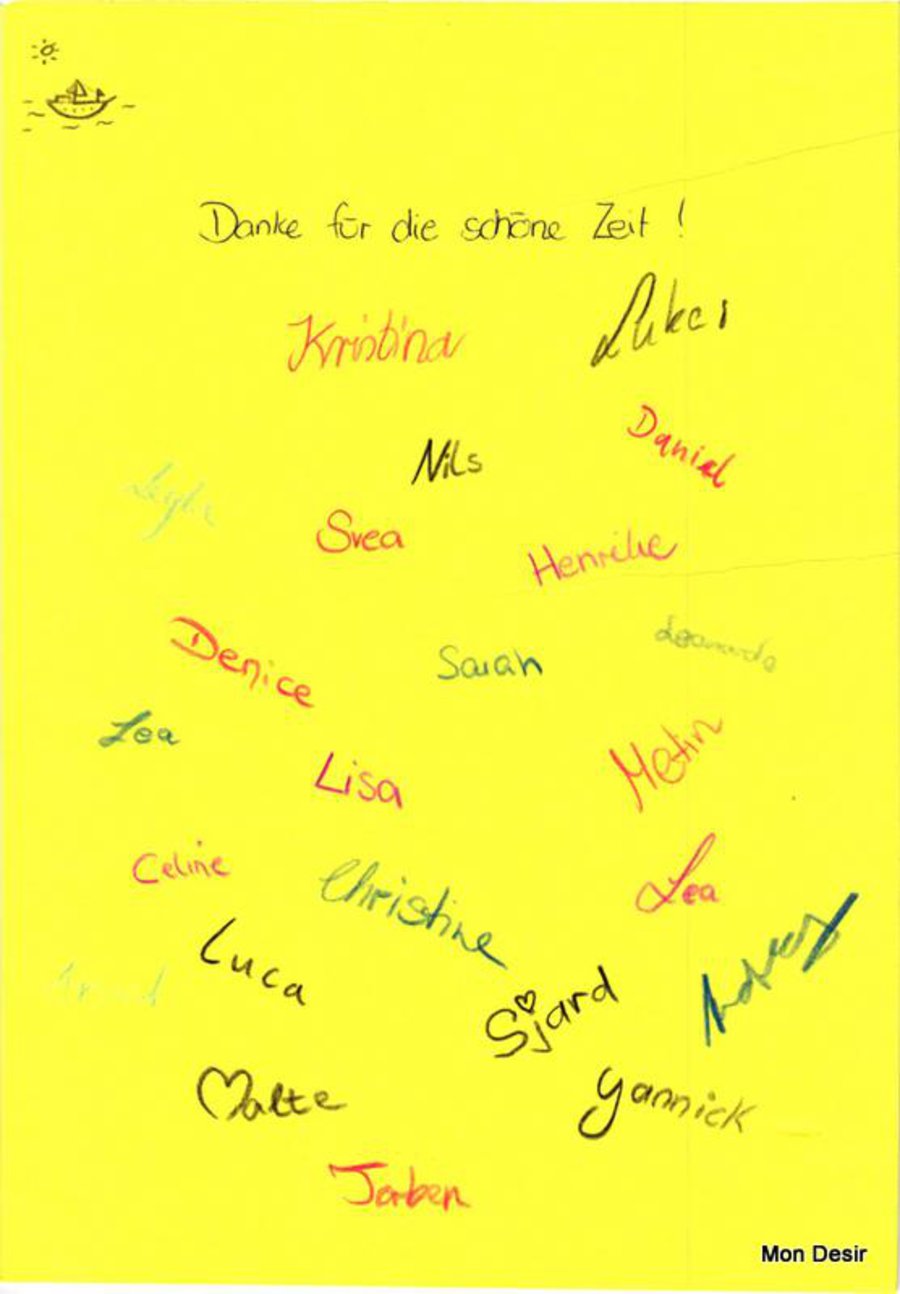 Danke für die schöne Zeit !
Kristina
Nils
Danial
Svea
Henrike
Denice
Sarah
Leonardo
Lea
Lisa
Metin
Celine
Christine
Lea
Luca
Sjard
Malte
Yannick
Torben
Mon Desir